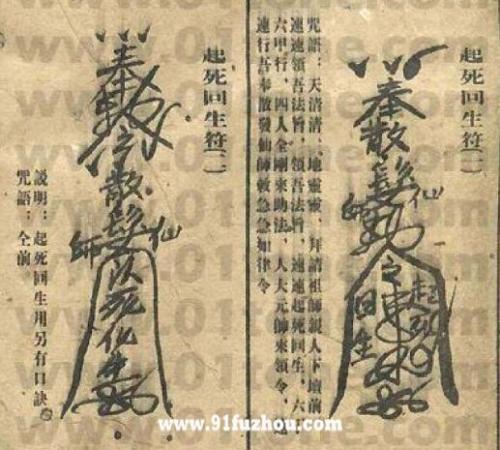 起死回生符(一)
奉散髮仙師勅令
起死回生
咒語：天清清，地靈靈，拜請祖師親人下壇前，
速速領吾法旨，領吾法旨，速速起死回生，六丁
六甲行，四人金剛來助法，人大元帥來領令，速
速行吾奉散發仙師敕急急如律令
起死回生符(二)
奉勅令散髮仙師以死化生
說明：起死回生用另有口訣。
咒語：仝前
www.91fuzhou.com